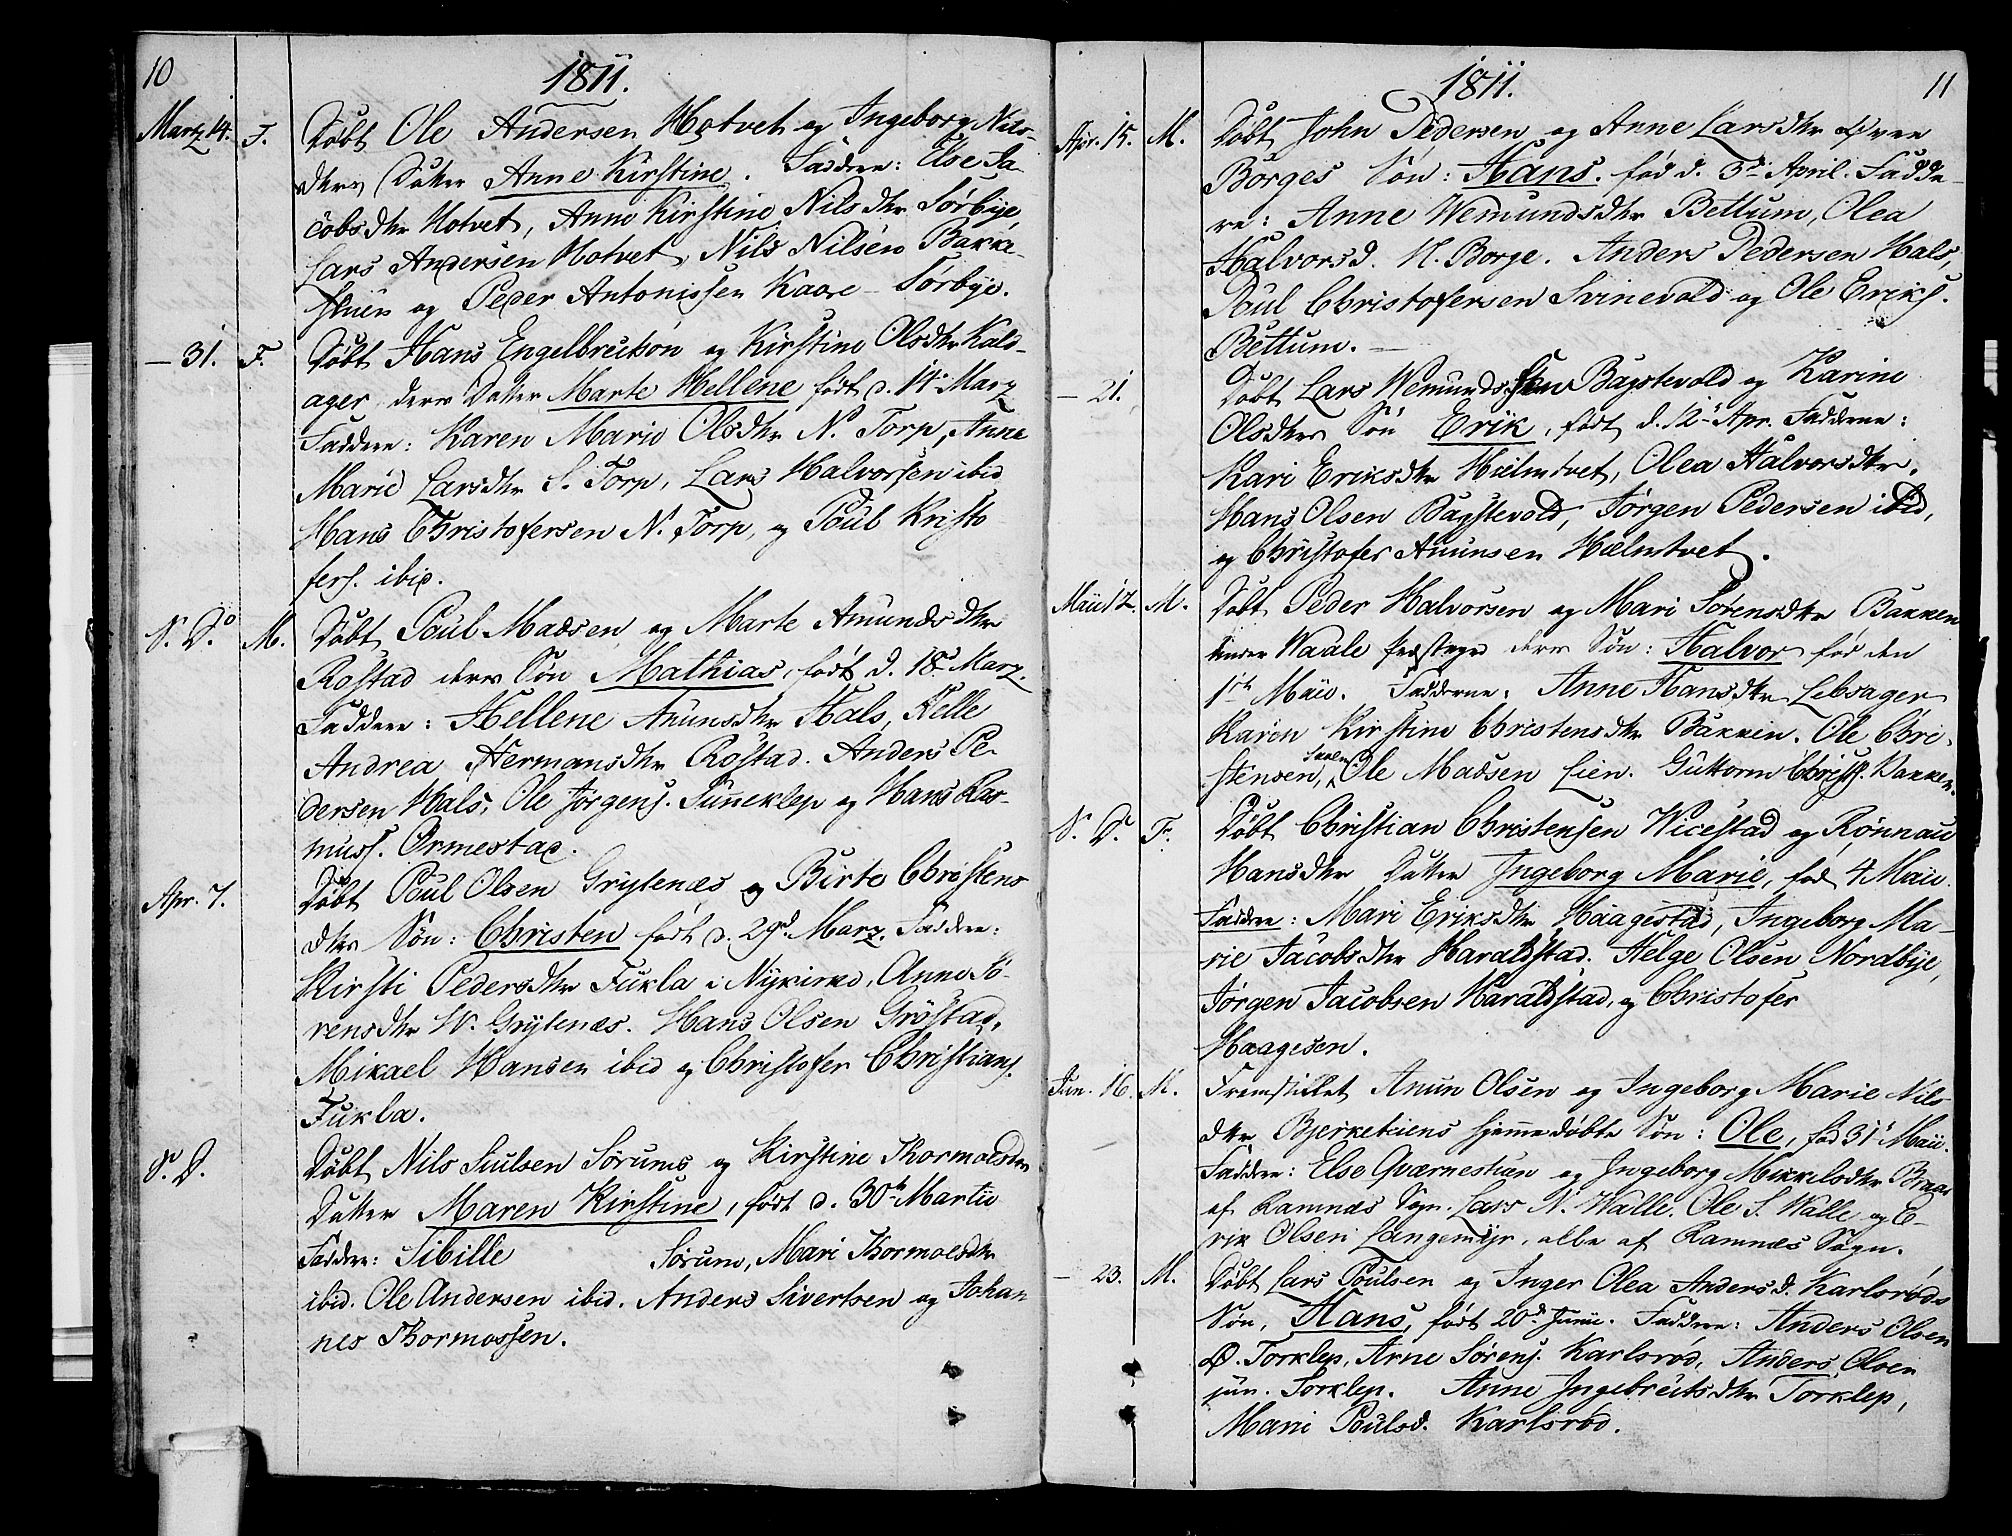 10
1811.
Martz 14. F. Døbt Ole Andersen Hotvet og Ingeborg Nils-
dtrs Datter Anne Kirstine. Faddere: Else Ja-
cobsdtr Hotvet, Anne Kirstine Nilsdtr Sørbye,
Lars Andersen Hotvet, Nils Nilsen Bakke-
stuen og Peder Antonissen Kaare - Sørbye.
- 31. F. Døbt Hans Engelbretsøn og Kirstine Olsdtr Kals-
ager, deres Datter Marte Hellene født d. 14 Marz
Faddere: Karen Marie Olsdtr N. Torp, Anne
Marie Larsdtr S. Torp, Lars Halvorsen ibid
Hans Christofersen N. Torp, og Poul Kristo-
fers. ibid.
S. D. M. Døbt Poul Madsen og Marte Amundsdtr
Rostad deres Søn Mathias, født d. 18 Marz.
Faddere: Hellene Anunsdtr Hals, Helle
Andrea Hermansdtr Rostad. Anders Pe-
dersen Hals, Ole Jørgens. Sunneklep og Hans Ras-
muss. Ormestad.
Apr. 7. Døbt Poul Olsen Grytenæs og Birte Christens
dtrs Søn: Christen født d. 29d Marz. Faddere:
Kirsti Pedersdtr Fukla i Nykirke, Anne Sø-
rensdtr W. Grytenæs. Hans Olsen Grøstad,
Mikael Hansen ibid og Christofer Christians.
Fukla.
S. D. Døbt Nils Siulsen Sørums og Kirstine Thormolsdtr
Datter Maren Kirstine, født d. 30te Martii
Faddere: Sibille Sørum, Mari Thormolsdtr
ibid. Ole Andersen ibid. Anders Sivertsen og Johan
nes Thormossen.
11
1811.
Apr. 15. M. Døbt John Pedersen og Anne Larsdtr øvre
Borges Søn: Hans. fød d. 3d April. Fadde-
re: Anne Wemundsdtr Bettum, Olea
Halvorsd. N. Borge. Anders Pedersen Hals,
Poul Christofersen Svinevold og Ole Eriks.
Bettum.
- 21. Døbt Lars Wemundssen Bagstevold og Karine
Olsdtrs Søn Erik, født d. 12 Apr. Fadderne:
Kari Eriksdtr Hielmtvet, Olea Halvorsdtr.
Hans Olsen Bagstevold, Jørgen Pedersen ibid,
og Christofer Anunsen Hielmtvet.
Maii 12. M. Døbt Peder Halvorsen og Mari Sørensdtr Bakken
under Waale Præstegd deres Søn: Halvor fød den
1ste Maii. Fadderne: Anne Hansdtr Lebsager
Karen Kirstine Christensdtr Bakken. Ole Chri-
stensen, Ole Madsen Lien. Guttorm Christs. Bakken.
S. D. F. Døbt Christian Christensen Wicestad og Rønnau
Hansdtr Datter Ingeborg Marie, fød 4 Maii
Faddere: Mari Eriksdtr Haagestad, Ingeborg Ma-
rie Jacobsdtr Haraldstad. Helge Olsen Nordbye,
Jørgen Jacobsen Haraldstad, og Christofer
Haagesen.
Jun. 16. M. Fremstillet Anun Olsen og Ingeborg Marie Nils
dtr Bjerkeliens hjemmedøbte Søn: Ole, fød 31 Maii.
Faddere: Else Qværnestuen og Ingeborg Mikkelsdtr Braar
af Ramnæs Sogn. Lars N. Walle. Ole S. Walle og E-
rik Olsen Langemyr, alle af Ramnæs Sogn.
- 23. M. Døbt Lars Poulsen og Inger Olea Andersd. Karlsrøds
Søn, Hans, født 20d Junii. Faddere: Anders Olsen
Ø. Torklep, Arne Sørens. Karlsrød, Anders Olsen
jun. Torklep. Anne Ingebretsdtr Torklep,
Mari Poulsd. Karlsrød.